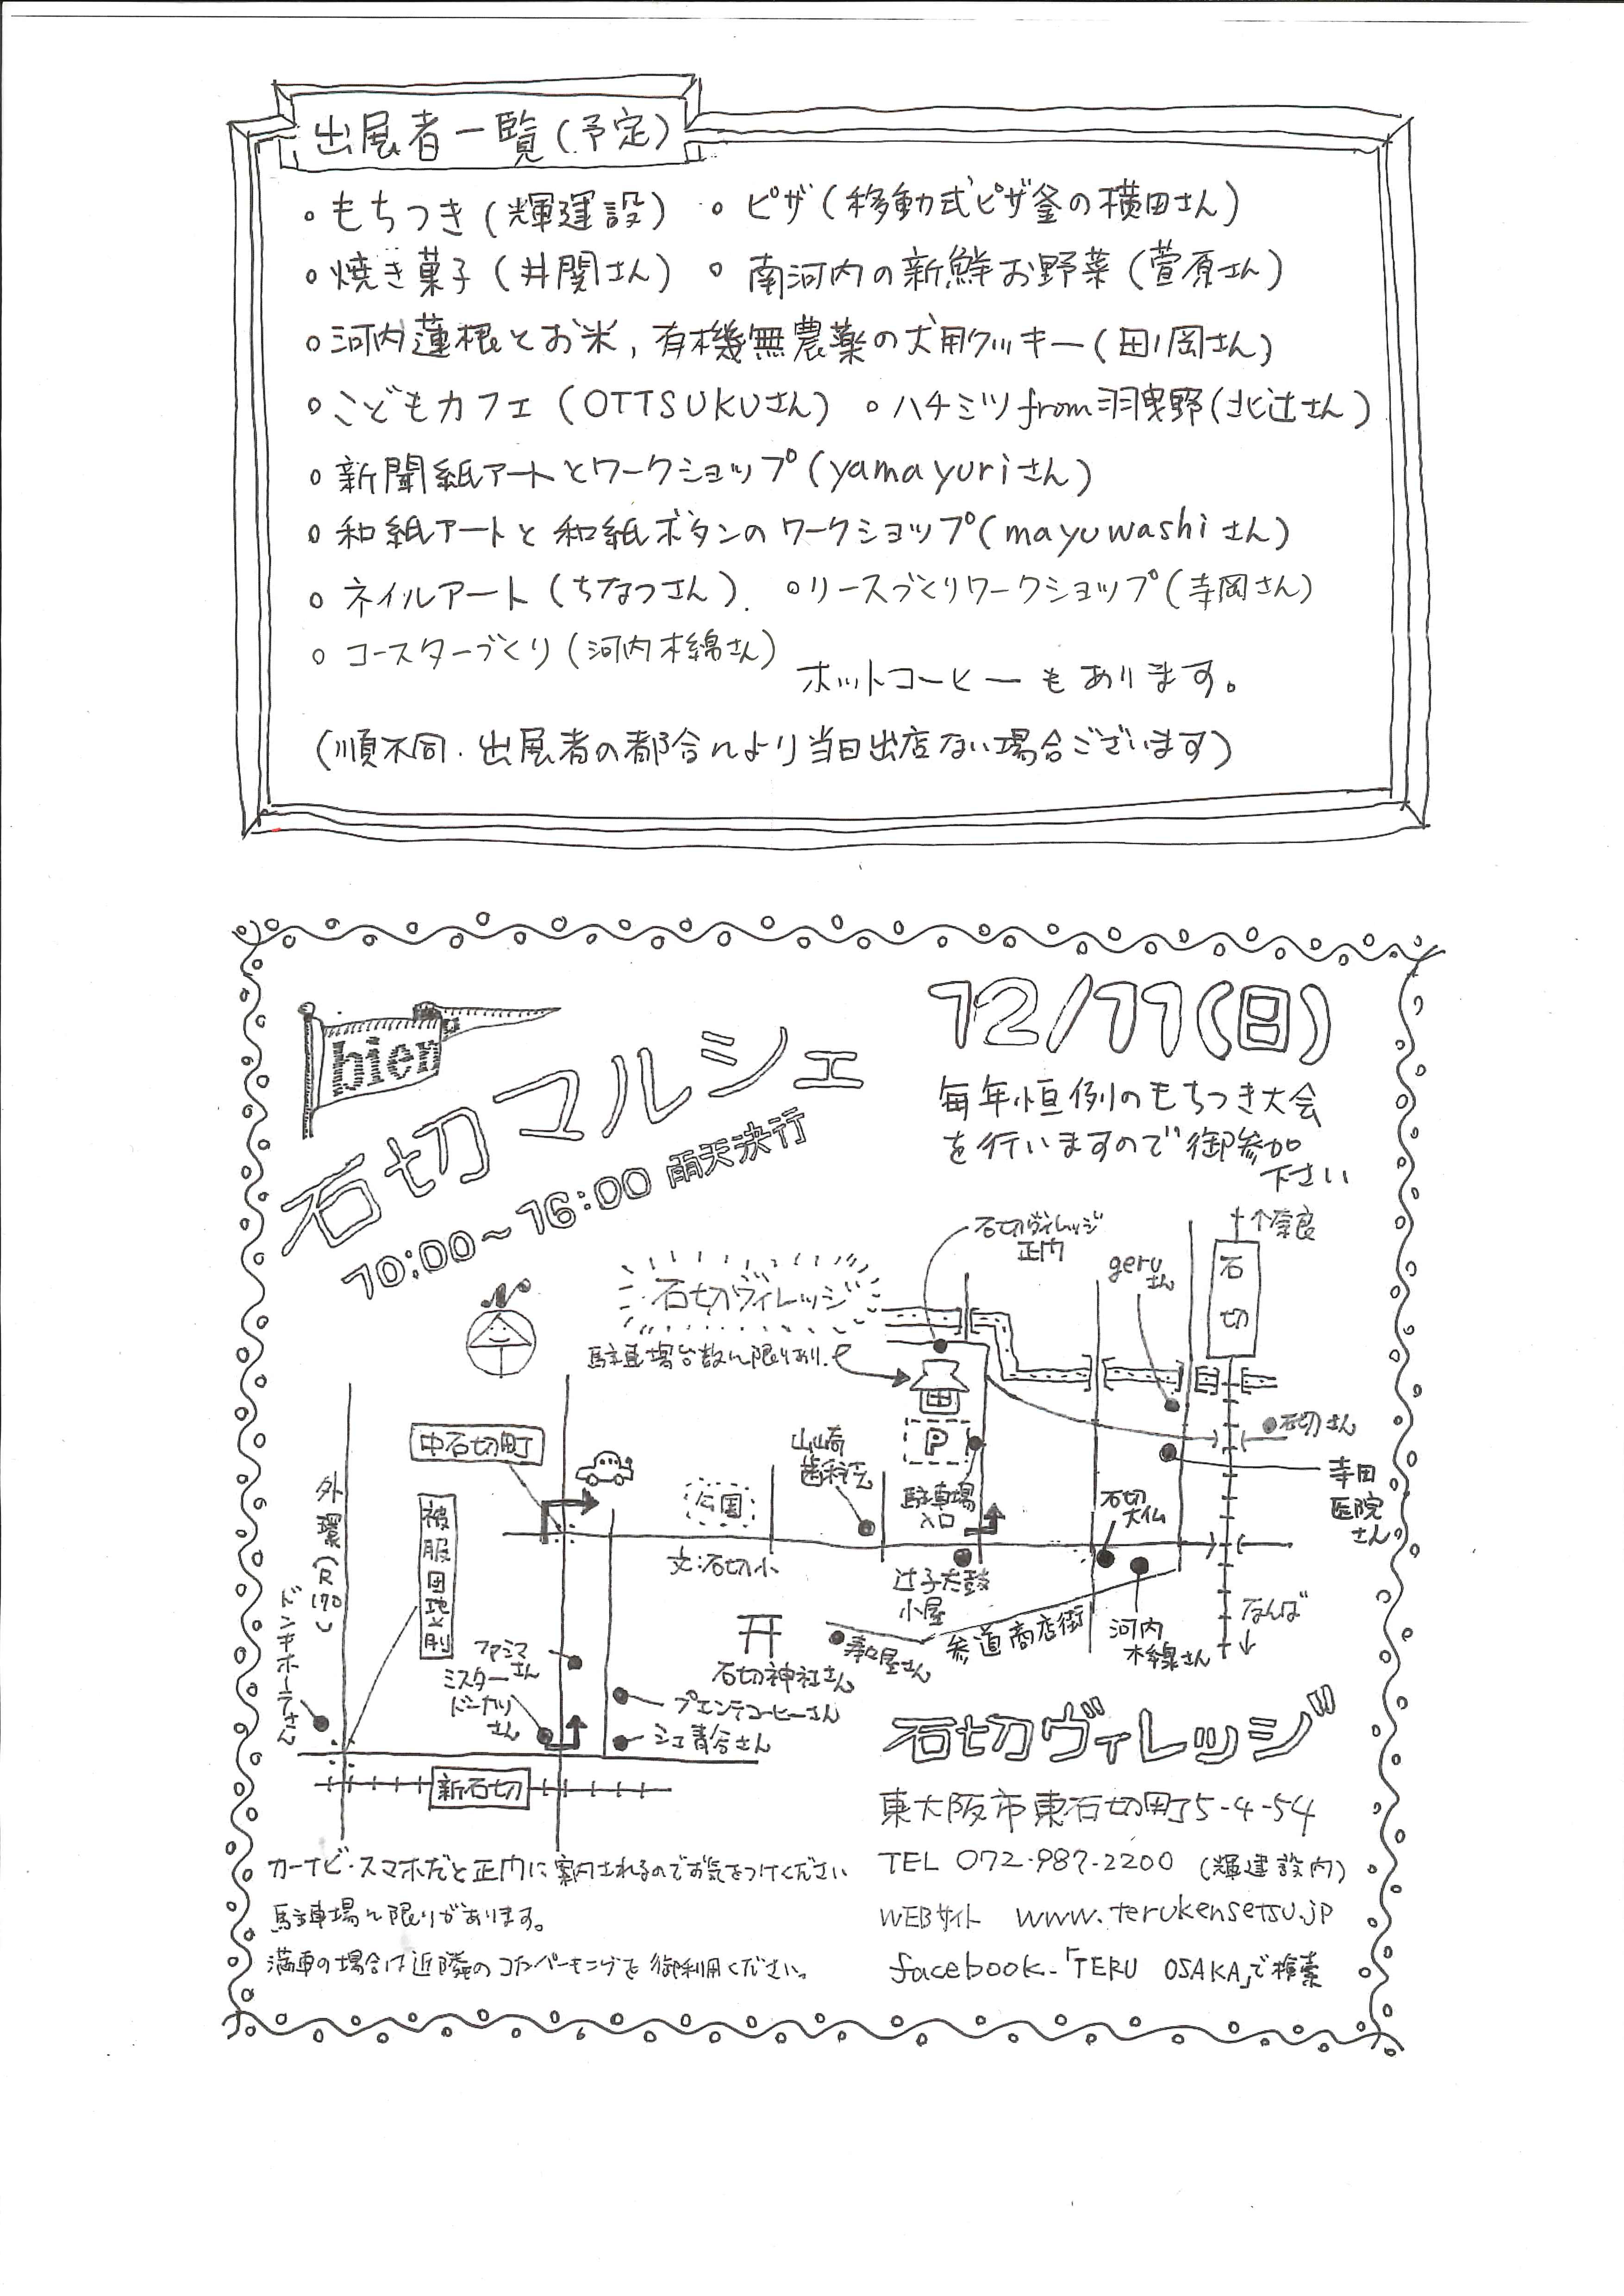 出展者一覧(予定)
。もちつき(輝建設) 。ピザ(移動式ピザ釜の横田さん)
。焼き菓子(井関さん) 。南河内の新鮮お野菜(萱原さん)
。河内蓮根とお米,有機無農薬の犬用クッキー(田ノ岡さん)
。こどもカフェ(OTTSUKUさん) 。ハチミツfrom羽曳野(北辻さん)
。新聞紙アートとワークショップ(yamayuriさん)
。和紙アートと和紙ボタンのワークショップ(mayuwashiさん)
。ネイルアート(ちなつさん). 。リースづくりワークショップ(寺岡さん)
。コースターづくり(河内木綿さん)
ホットコーヒーもあります。
(順不同.出展者の都合により当日出店ない場合ございます)
bien
石切マルシェ
10:00~16:00 雨天決行
12/11(日)
毎年恒例のもちつき大会
を行いますので御参加
下さい
石切ヴィレッジ
正門
geruさん
↑奈良
石切
石切ヴィレッジ
駐車場台数に限りあり.
石切さん
中石切町
山崎
歯科医
P
駐車場
入口
石切
大仏
寺田
医院
さん
外環(R170)
被服団地前
公園
文:石切小
辻子太鼓
小屋
なんば
↓
ドンキホーテさん
ファミマ
さん
ミスター
ドーナツ
さん
石切神社さん
参道商店街
河内
木綿さん
プエンテコーヒーさん
シェ青谷さん
新石切
石切ヴィレッジ
東大阪市東石切町5-4-54
TEL 072-987-2200 (輝建設内)
WEBサイト www.terukensetsu.jp
facebook-「TERU OSAKA」で検索
カーナビ・スマホだと正門に案内されるのでお気をつけください
駐車場に限りがあります。
満車の場合は近隣のコインパーキングを御利用ください。